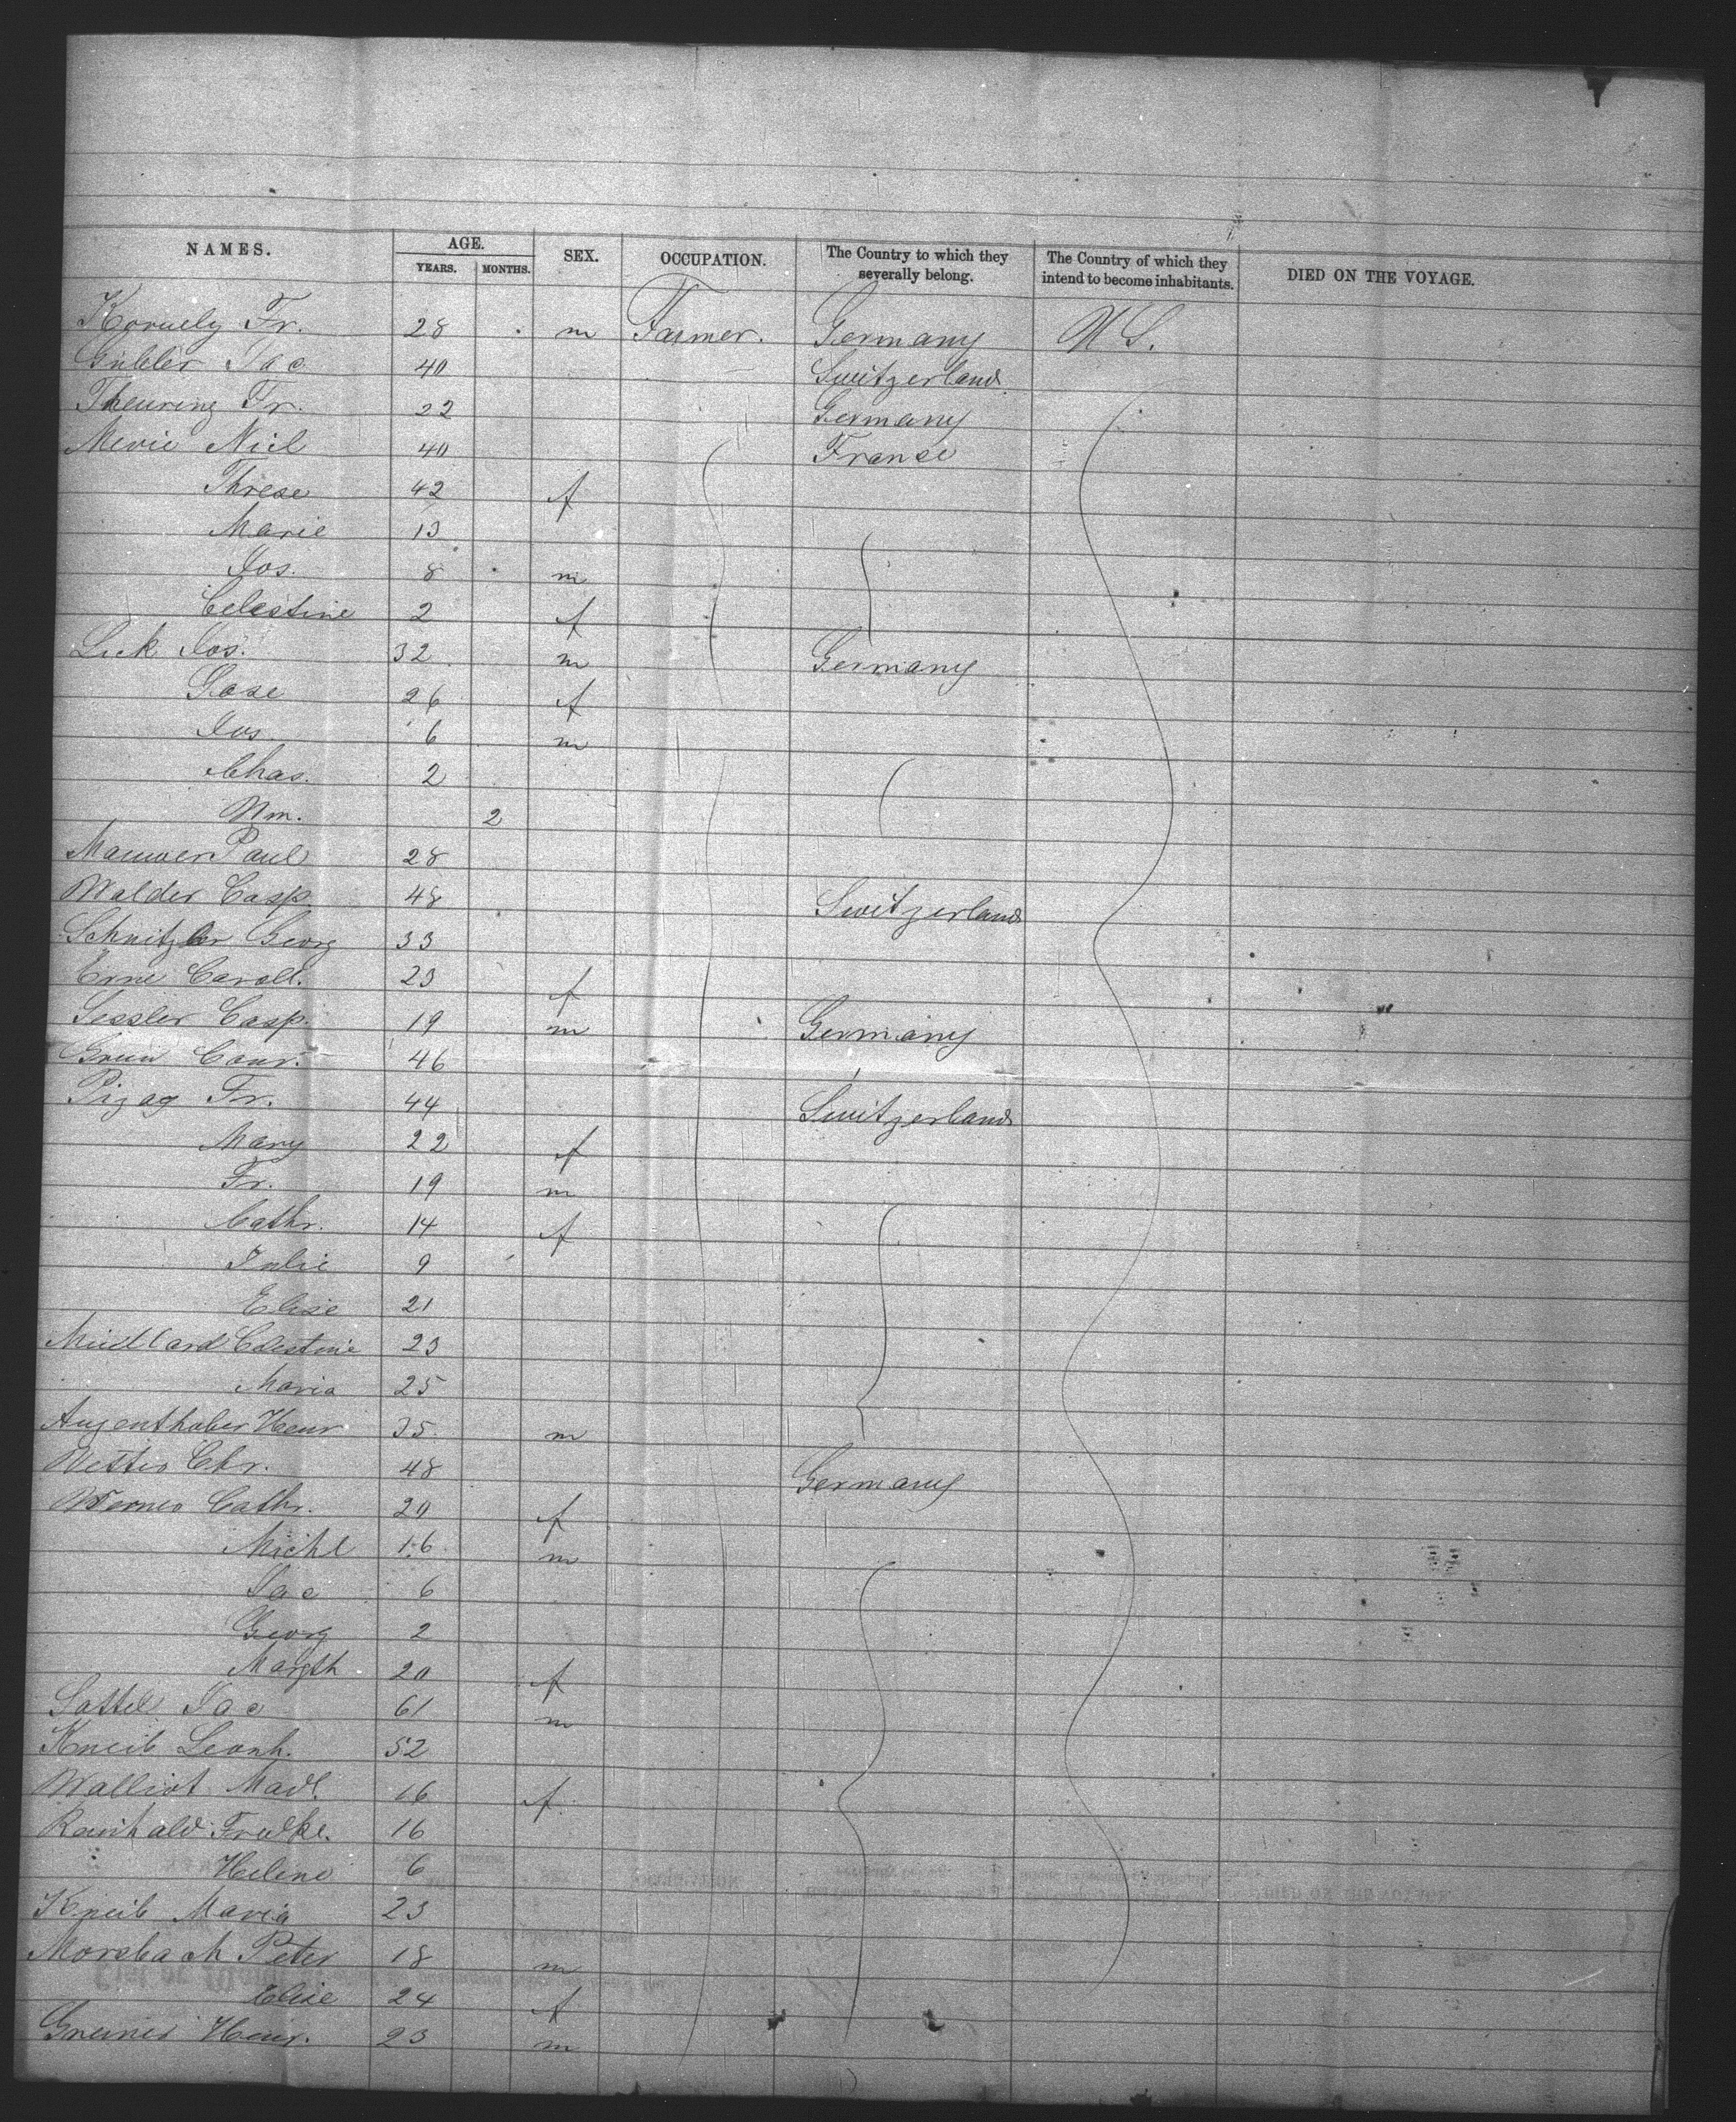 NAMES. AGE. SEX. OCCUPATION. The Country to which they severally belong. The Country of which they intend to become inhabitants. DIED ON THE VOYAGE.
YEARS. MONTHS.
Kornely Fr. 28 m Farmer. Germany U S.
Gubler Jac 40 Switzerland
Theuring Fr. 22 Germany
Mevie Nicl 40 Franse
Threse 42 f
Marie 13
Jos. 8 m
Celestine 2 f
Luk Jos. 32 m Germany
Rose 26 f
Jos 6 m
Chas. 2
Wm. 2
Mauwer Paul 28
Walder Casp. 48 Switzerland
Schnitzler Georg 33
Erne Caroll. 23 f
Sessler Casp. 19 m Germany
Grun Conr. 46
Pizag Fr. 44 Switzerland
Mary 22 f
Fr. 19 m
Cathr. 14 f
Julie 9
Elise 21
Celestine 23
Maria 25
Augenthaber Henr 35 m
Wetter Chr. 48 Germany
Werner Cathr. 20 f
Michl 16 m
Jac 6
Georg 2
Margth 20 f
Sattel Jac 61 m
Kneib Leonh. 52
Walliot Madl. 16 f
Reinhald 16
Helene 6
Kneib Maria 23
Morsbach Peter 18 m
Elise 24 f
Greiner Henr. 23 m